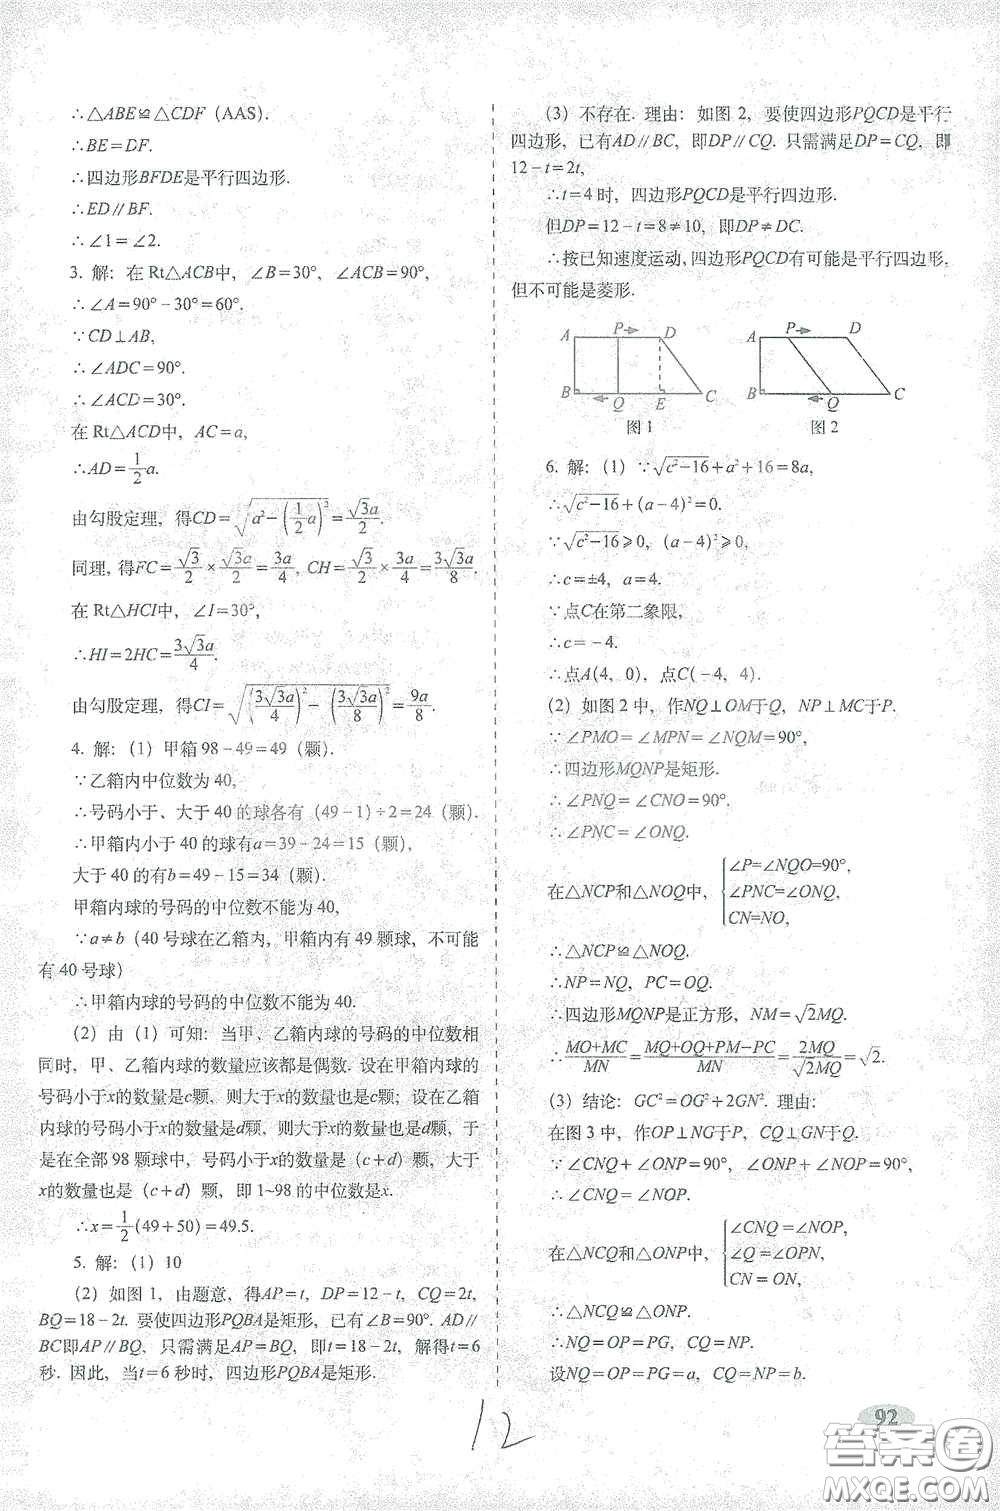 ∴△ABE≌△CDF（AAS）.
∴BE=DF.
∴四边形BFDE是平行四边形.
∴ED∥BF.
∴∠1=∠2.
3. 解：在 Rt△ACB中，∠B=30°，∠ACB=90°，
∴∠A=90°-30°=60°.
∵CD⊥AB，
∴∠ADC=90°.
∴∠ACD=30°.
在 Rt△ACD中，AC=a，
∴AD=1/2a.
由勾股定理，得CD=√(a²-(1/2a)²)=√3a/2.
同理，得FC=√3/2×√3a/2=3a/4，CH=√3/2×3a/4=3√3a/8.
在 Rt△HCI中，∠I=30°，
∴HI=2HC=3√3a/4.
由勾股定理，得CI=√((3√3a/4)²-(3√3a/8)²)=9a/8.
4. 解：（1）甲箱 98-49=49（颗）.
∵乙箱内中位数为 40，
∴号码小于、大于 40 的球各有（49-1）÷2=24（颗）.
∴甲箱内小于 40 的球有a=39-24=15（颗），
大于 40 的有b=49-15=34（颗）.
甲箱内球的号码的中位数不能为 40，
∵a≠b（40 号球在乙箱内，甲箱内有 49 颗球，不可能
有 40 号球）
∴甲箱内球的号码的中位数不能为 40.
（2）由（1）可知：当甲、乙箱内球的号码的中位数相
同时，甲、乙箱内球的数量应该都是偶数. 设在甲箱内球的
号码小于x的数量是c颗，则大于x的数量也是c颗；设在乙箱
内球的号码小于x的数量是d颗，则大于x的数量也是d颗，于
是在全部 98 颗球中，号码小于x的数量是（c+d）颗，大于
x的数量也是（c+d）颗，即 1~98 的中位数是x.
∴x=1/2(49+50)=49.5.
5. 解：（1）10
（2）如图 1，由题意，得AP=t，DP=12-t，CQ=2t，
BQ=18-2t. 要使四边形PQBA是矩形，已有∠B=90°. AD∥
BC即AP∥BQ，只需满足AP=BQ，即t=18-2t，解得t=6
秒. 因此，当t=6 秒时，四边形PQBA是矩形.
（3）不存在. 理由：如图 2，要使四边形PQCD是平行
四边形，已有AD∥BC，即DP∥CQ. 只需满足DP=CQ，即
12-t=2t，
∴t=4 时，四边形PQCD是平行四边形.
但DP=12-t=8≠10，即DP≠DC.
∴按已知速度运动，四边形PQCD有可能是平行四边形，
但不可能是菱形.
A P D
B Q E C
图 1
A P D
B Q C
图 2
6. 解：（1）∵√(c²-16)+a²+16=8a，
∴√(c²-16)+(a-4)²=0.
∵√(c²-16)⩾0，(a-4)²⩾0，
∴c=±4，a=4.
∵点C在第二象限，
∴c=-4.
∴点A(4，0)，点C(-4，4).
（2）如图 2 中，作NQ⊥OM于Q，NP⊥MC于P.
∵∠PMO=∠MPN=∠NQM=90°，
∴四边形MQNP是矩形.
∴∠PNQ=∠CNO=90°.
∴∠PNC=∠ONQ.
在△NCP和△NOQ中，{∠P=∠NQO=90°，
∠PNC=∠ONQ，
CN=NO，
∴△NCP≌△NOQ.
∴NP=NQ，PC=OQ.
∴四边形MQNP是正方形，NM=√2MQ.
∴(MO+MC)/MN=(MQ+OQ+PM-PC)/MN=2MQ/√2MQ=√2.
（3）结论：GC²=OG²+2GN². 理由：
在图 3 中，作OP⊥NG于P，CQ⊥GN于Q.
∵∠CNQ+∠ONP=90°，∠ONP+∠NOP=90°，
∴∠CNQ=∠NOP.
在△NCQ和△ONP中，{∠CNQ=∠NOP，
∠Q=∠OPN，
CN=ON，
∴△NCQ≌△ONP.
∴NQ=OP=PG，CQ=NP.
设NQ=OP=PG=a，CQ=NP=b.
92
12
答案圈
MXQE.COM